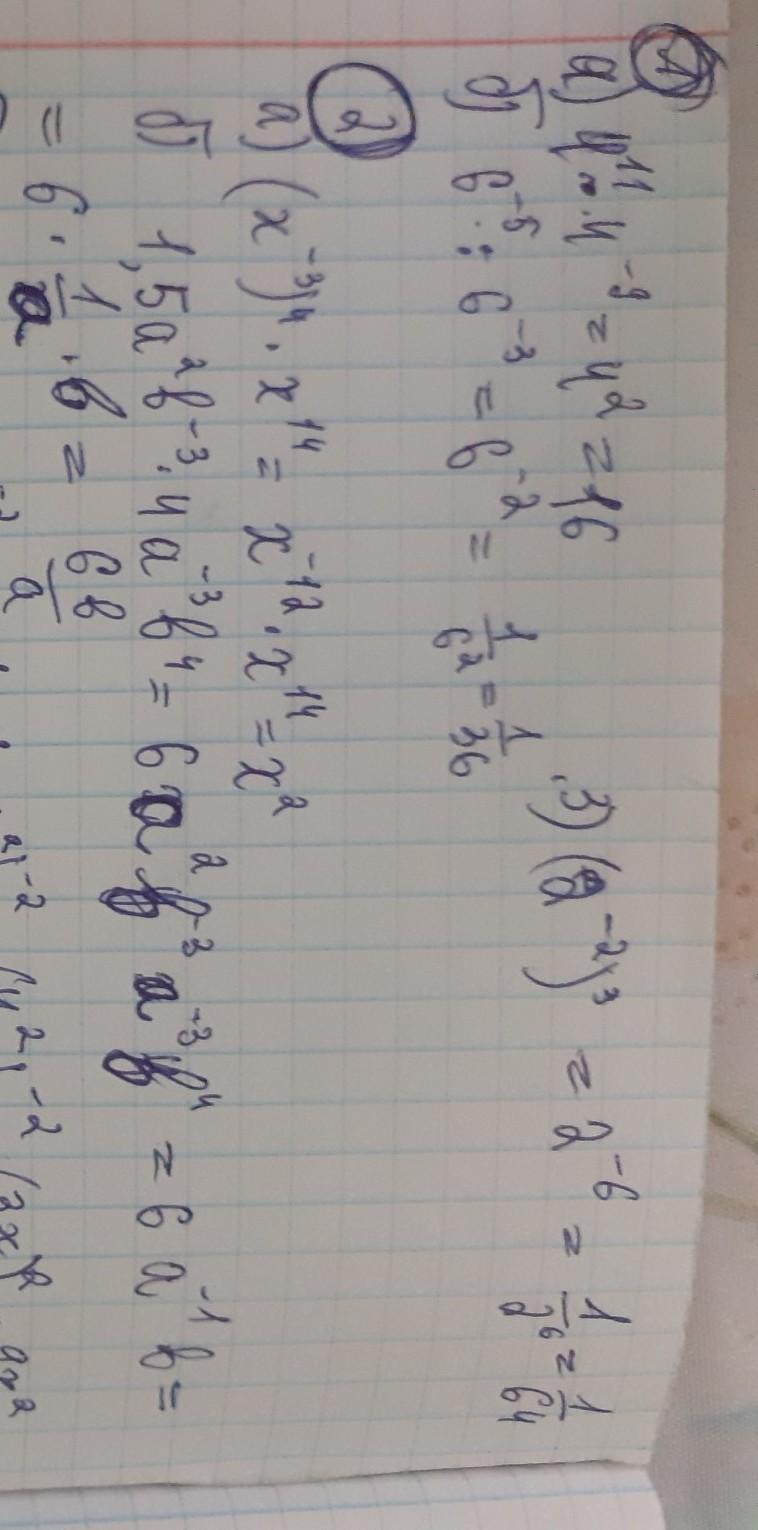 1
а) 4¹¹ · 4⁻⁹ = 4² = 16
б) 6⁻⁵ : 6⁻³ = 6⁻² = 1/6² = 1/36
3) (2⁻²)³ = 2⁻⁶ = 1/2⁶ = 1/64
2
а) (x⁻³)⁴ · x¹⁴ = x⁻¹² · x¹⁴ = x²
б) 1,5a²b⁻³ · 4a⁻³b⁴ = 6a²b⁻³a⁻³b⁴ = 6a⁻¹b =
= 6 · 1/a · b = 6b/a